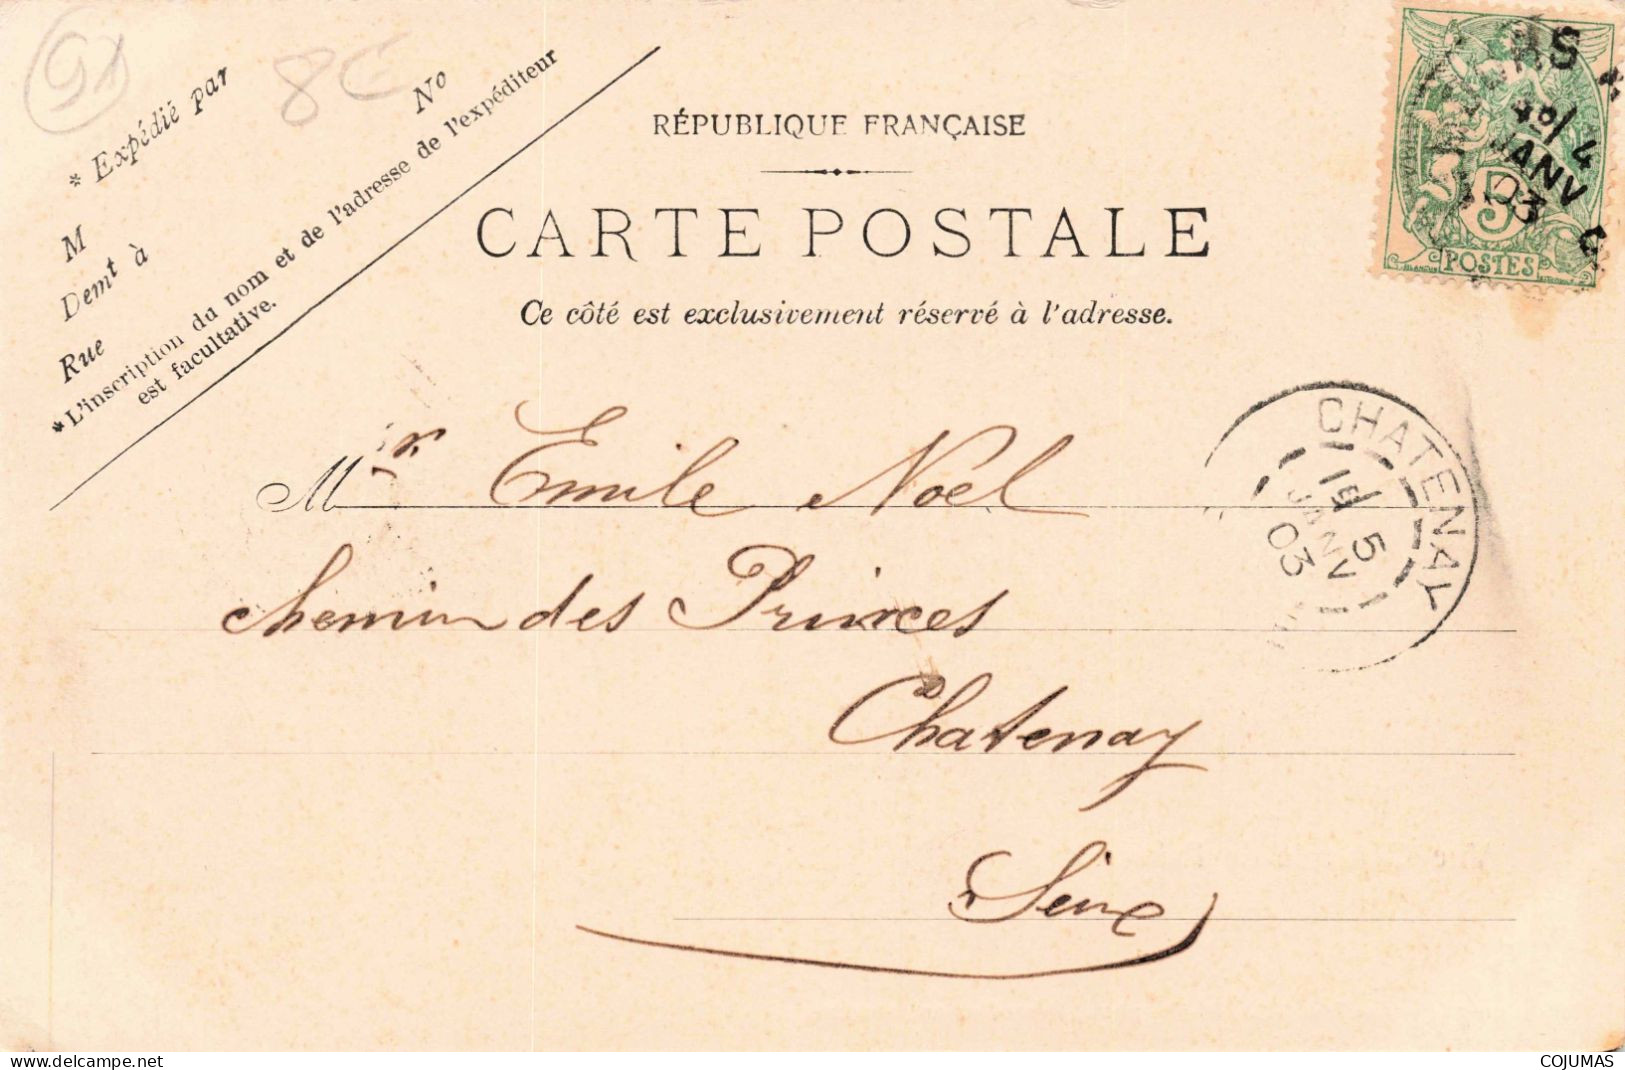 91
8€
* Expédié par
No
M
Demt à
Rue
*L'inscription du nom et de l'adresse de l'expéditeur
est facultative.
RÉPUBLIQUE FRANÇAISE
CARTE POSTALE
Ce côté est exclusivement réservé à l'adresse.
4
JANV
03
5
POSTES
Mr Emile Noël
chemin des Princes
Chatenay
Seine
CHATENAY
5
JANV
03
www.delcampe.net
COJUMAS